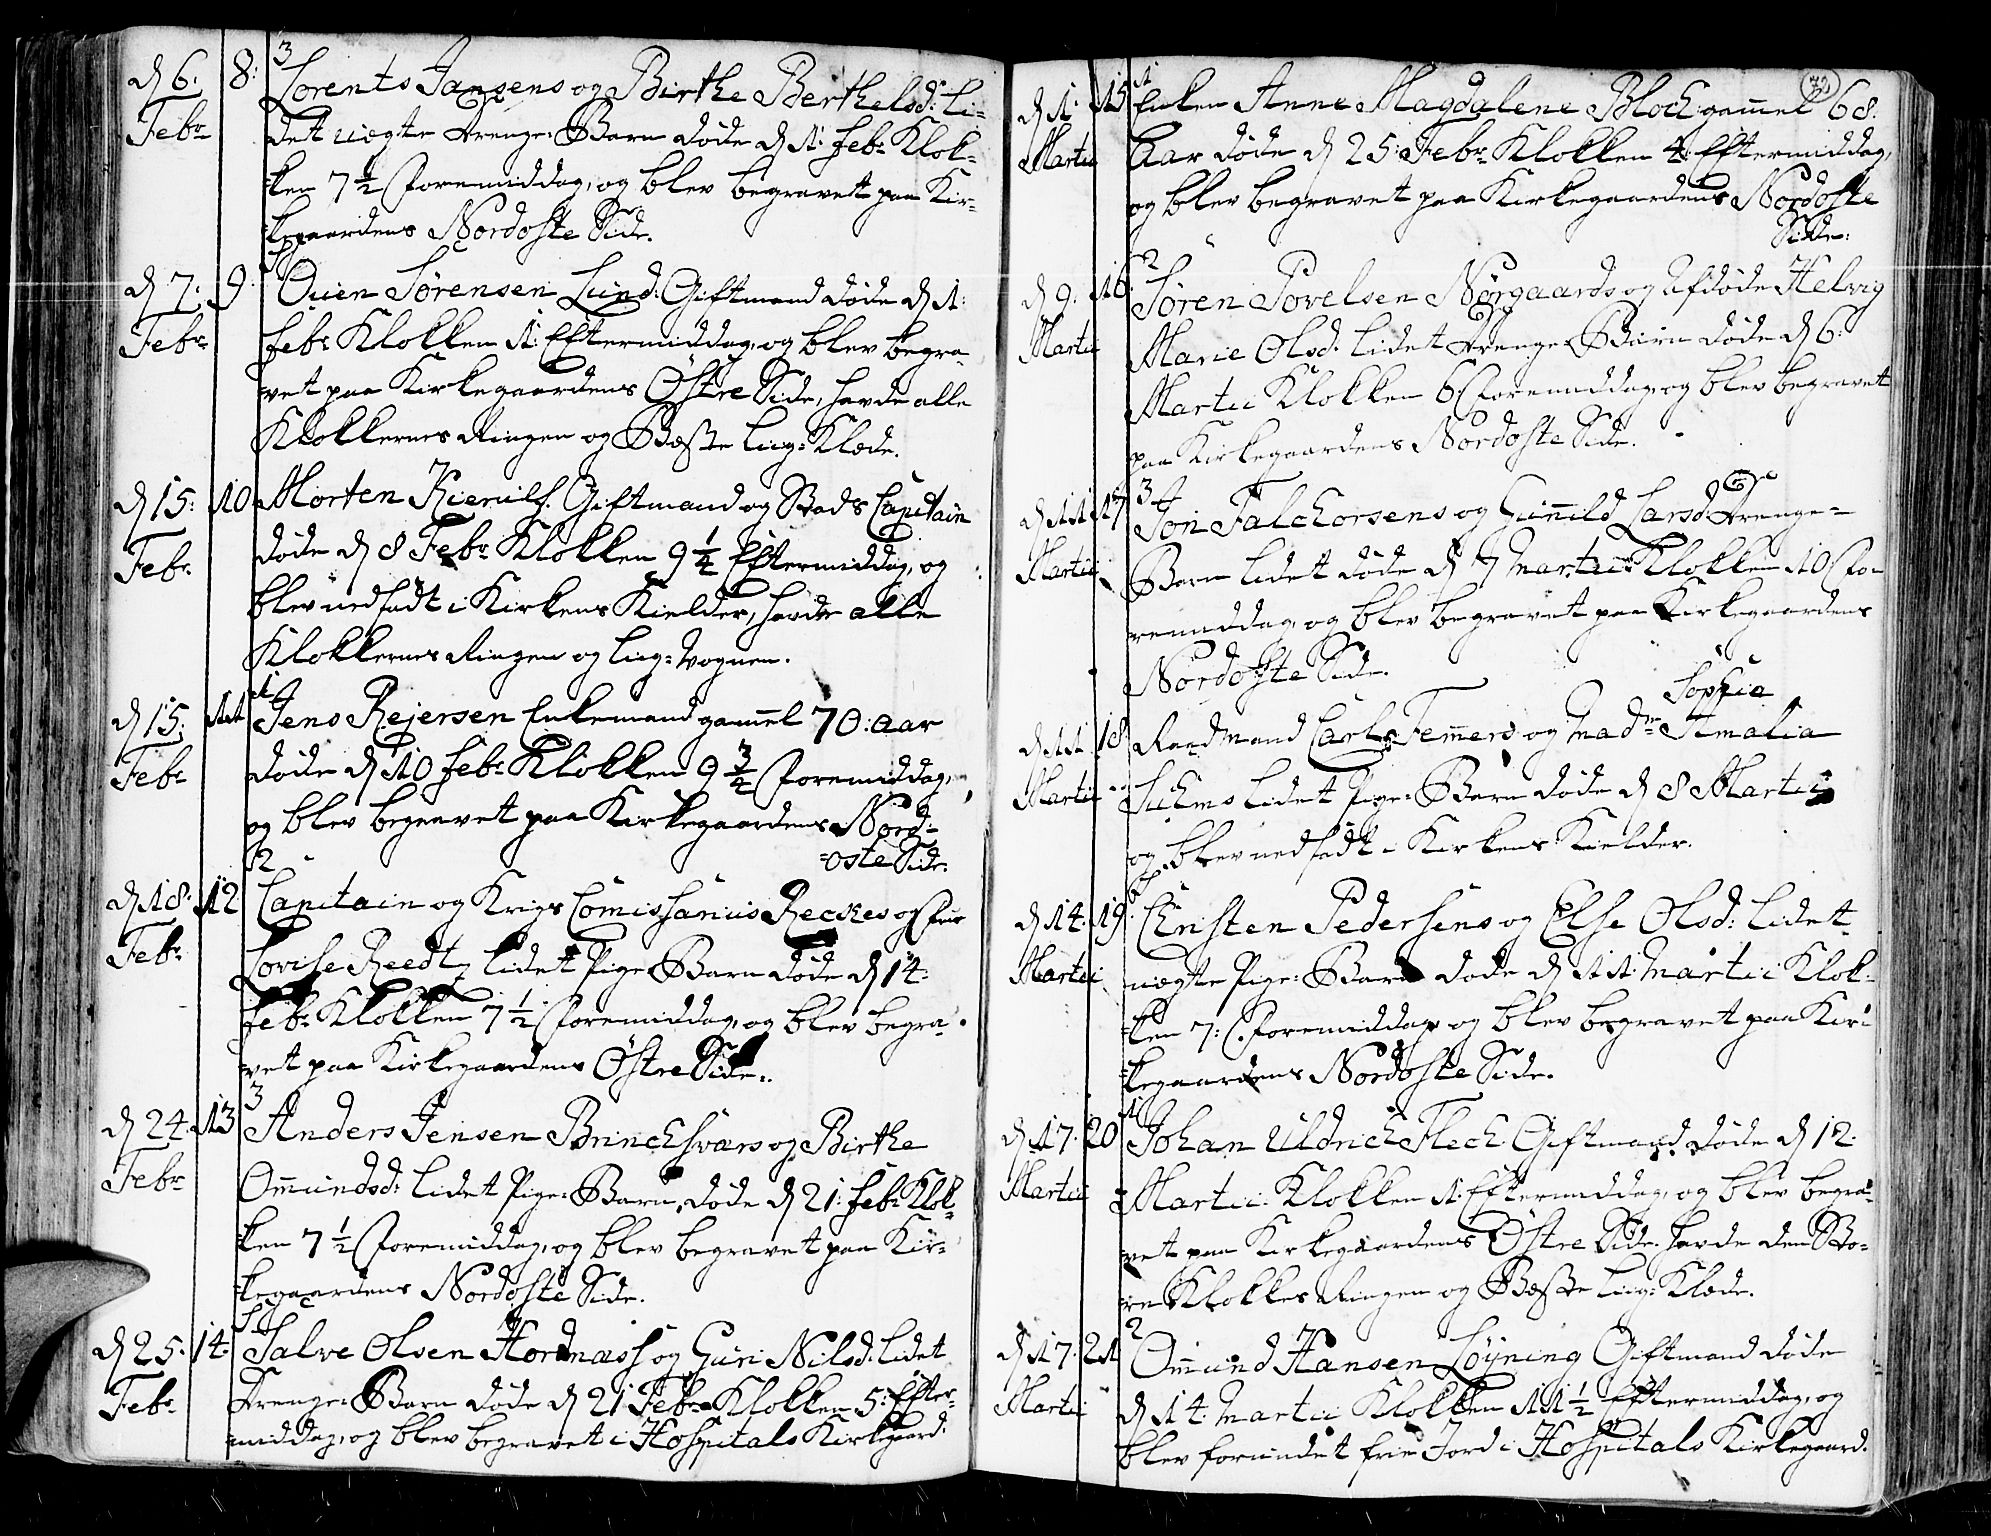 d 6: 8: 3 Lorents Jansens og Birthe Berthelsd: Li-
Febr det uægte Drenge-Barn døde d 1: Febr Klok-
ken 7 1/2 Foremiddag, og blev begravet paa Kir-
kegaardens Nordoste Side.
d 7: 9: Ouen Sørensen Lund: Giftmand døde d 1:
Febr Febr Klokken 1: Eftermiddag, og blev begra-
vet paa Kirkegaardens Østre Side, havde alle
Klokkernes Ringen og Beste Liig-Klæde.
d 15: 10 Morten Giftmand og Stads Capitain
Febr. døde d 8 Febr Klokken 9 1/4 Eftermiddag, og
blev nedsadt i Kirkens Kielder, havde alle
Klokkernes Ringen og Liig-Vognen.
d 15: 11 1 Jens Rejersen Enkemand gammel 70: aar
Febr døde d 10 Febr Klokken 9 3/4 Foremiddag,
og blev begravet paa Kirkegaardens Nord-
oste Side.
d 18: 12 2 Capitain og Krigs Comissarius Reckes og Frue
Febr Lovise Reedtz lidet Pige Barn døde d 14:
Febr Klokken 7 1/2 Foremiddag, og blev begra-
vet paa Kirkegaardens Østre Side.
d 24: 13 3 Anders Jensen Brinchsvars og Birthe
Febr Omundsd: lidet Pige-Barn, døde d 21: Febr Klok-
ken 7 1/2 Foremiddag, og blev begravet paa Kir-
kegaardens Nordoste Side.
d 25: 14: Salve Olsen Hornæss og Guri Nilsd: lidet
Febr. Drenge-Barn døde d 21 Febr Klokken 5: Efter-
middag, og blev begravet i Hospitals Kirkegaard.
72
d 1: 15 1 Enken Anne Magdalene Bloch gammel 68:
Martii Aar døde d 25: Febr. Klokken 4: Eftermiddag,
og blev begravet paa Kirkegaardens Nordoste
Side:
d 9: 16 2 Søren Povelsen Nørgaards og Afdøde Helvig
Martii Marie Olsd. lidet Drenge Barn døde d 6:
Martii Klokken 6: Foremiddag, og blev begravet
paa Kirkegaardens Nordoste Side.
d 11 17 3 Jon Falchorsens og Gunnild Larsd: Drenge-
Martii Barn lidet døde d 7 Martii Klokken 10 Fo-
remiddag, og blev begravet paa Kirkegaardens
Nordoste Side.
Sophia
d 11 18 Raadmand Carl Femmers og Madm Amalia
Martii Suhms lidet Pige-Barn døde d 8 Martii
og blev nedsadt i Kirkens Kielder.
d 14: 19 Christen Pedersens og Else Olsd: lidet
Martii uægte Pige-Barn døde d 11: Martii Klok-
ken 7: Foremiddag og blev begravet paa Kir-
kegaardens Nordoste Side.
d 17: 20 1 Johan Uldrich Flech Giftmand døde d 12:
Martii Martii Klokken 1: Eftermiddag, og blev begra-
vet paa Kirkegaardens Østre Side havde den Sto-
re Klokkes Ringen og Beste Liig-Klæde.
d 17: 21 2 Omund Hansen Løyning Giftmand døde
Martii d 14: Martii Klokken 11 1/2 Eftermiddag, og
blev forundet frie Jord i Hospitals Kirkegaard.